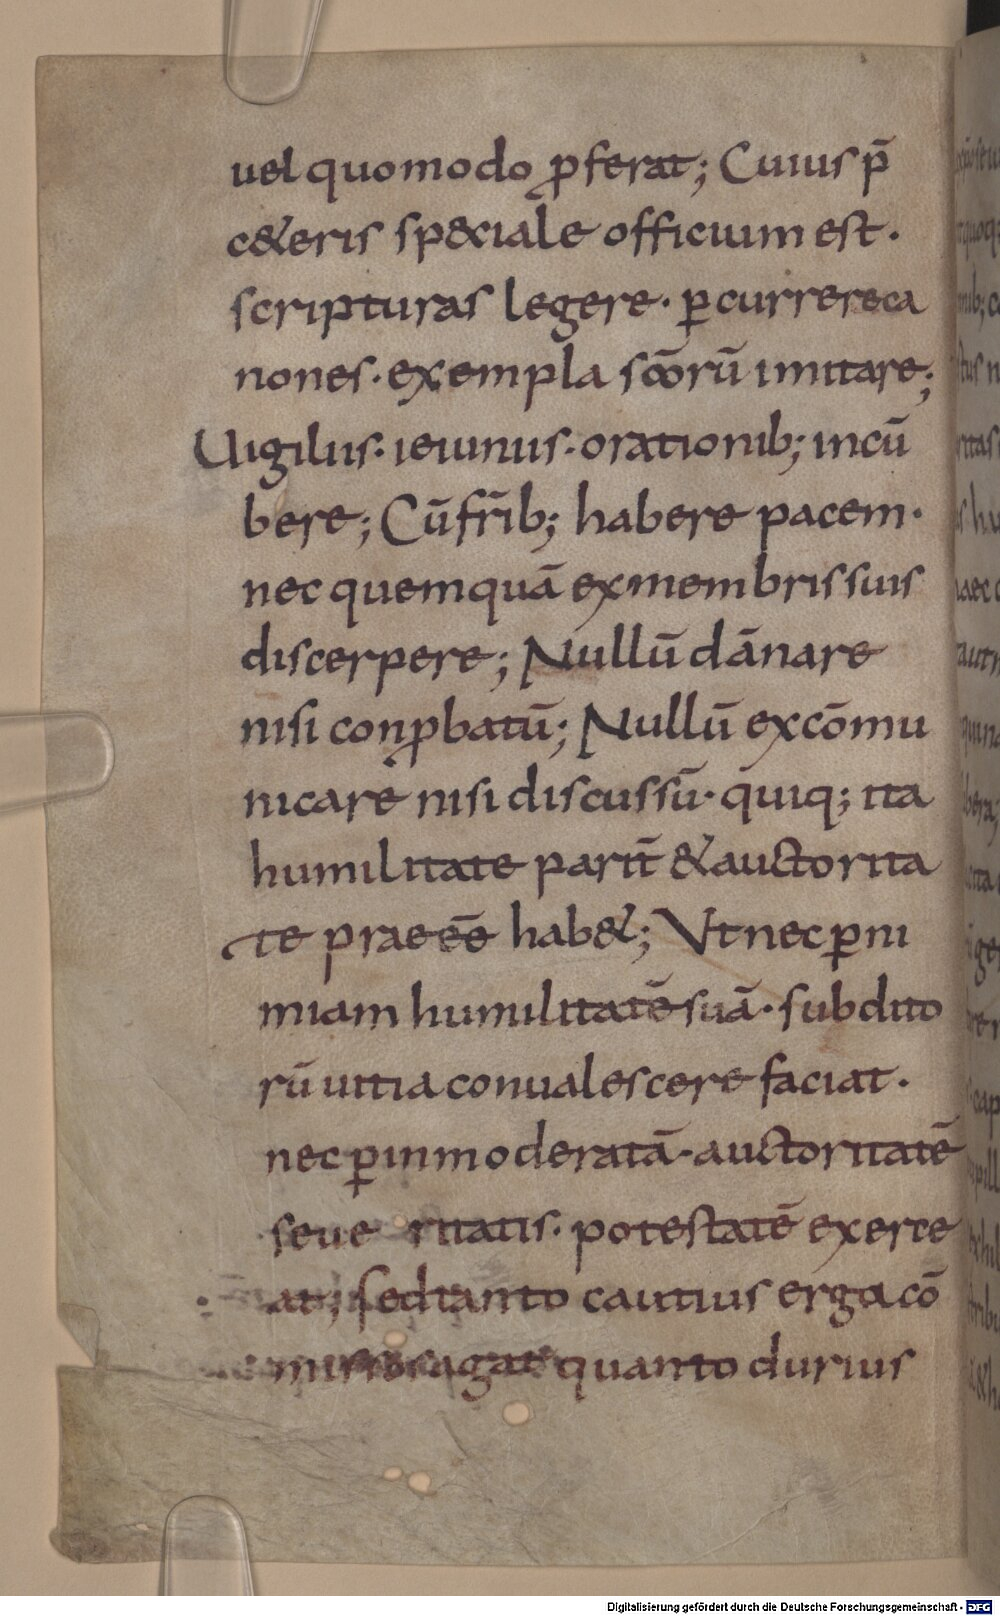 uel quomodo ꝓferat; Cuius p̄
c&eris sp&ciale officium est.
scripturas legere · ꝑcurrere ca
nones · exempla sc̄oꝝ imitare;
Uigiliis · ieiuniis · orationib; incū
bere; Cū fr̄ib; habere pacem ·
nec quemquā ex membris suis
discerpere; Nullū dānare
nisi conꝓbatū; Nullū excōmu
nicare nisi discussū · quiq; ita
humilitate parit̄ & auctorita
te prae ēē hab&; Vt nec ꝑ ni
miam humilitatē suā · subdito
rū uitia conualescere faciat ·
nec ꝑ inmoderatā · auctoritatē
seueritatis · potestatē exerce
at; sed tanto cautius erga cō
missos agat quanto durius
Digitalisierung gefördert durch die Deutsche Forschungsgemeinschaft - DFG